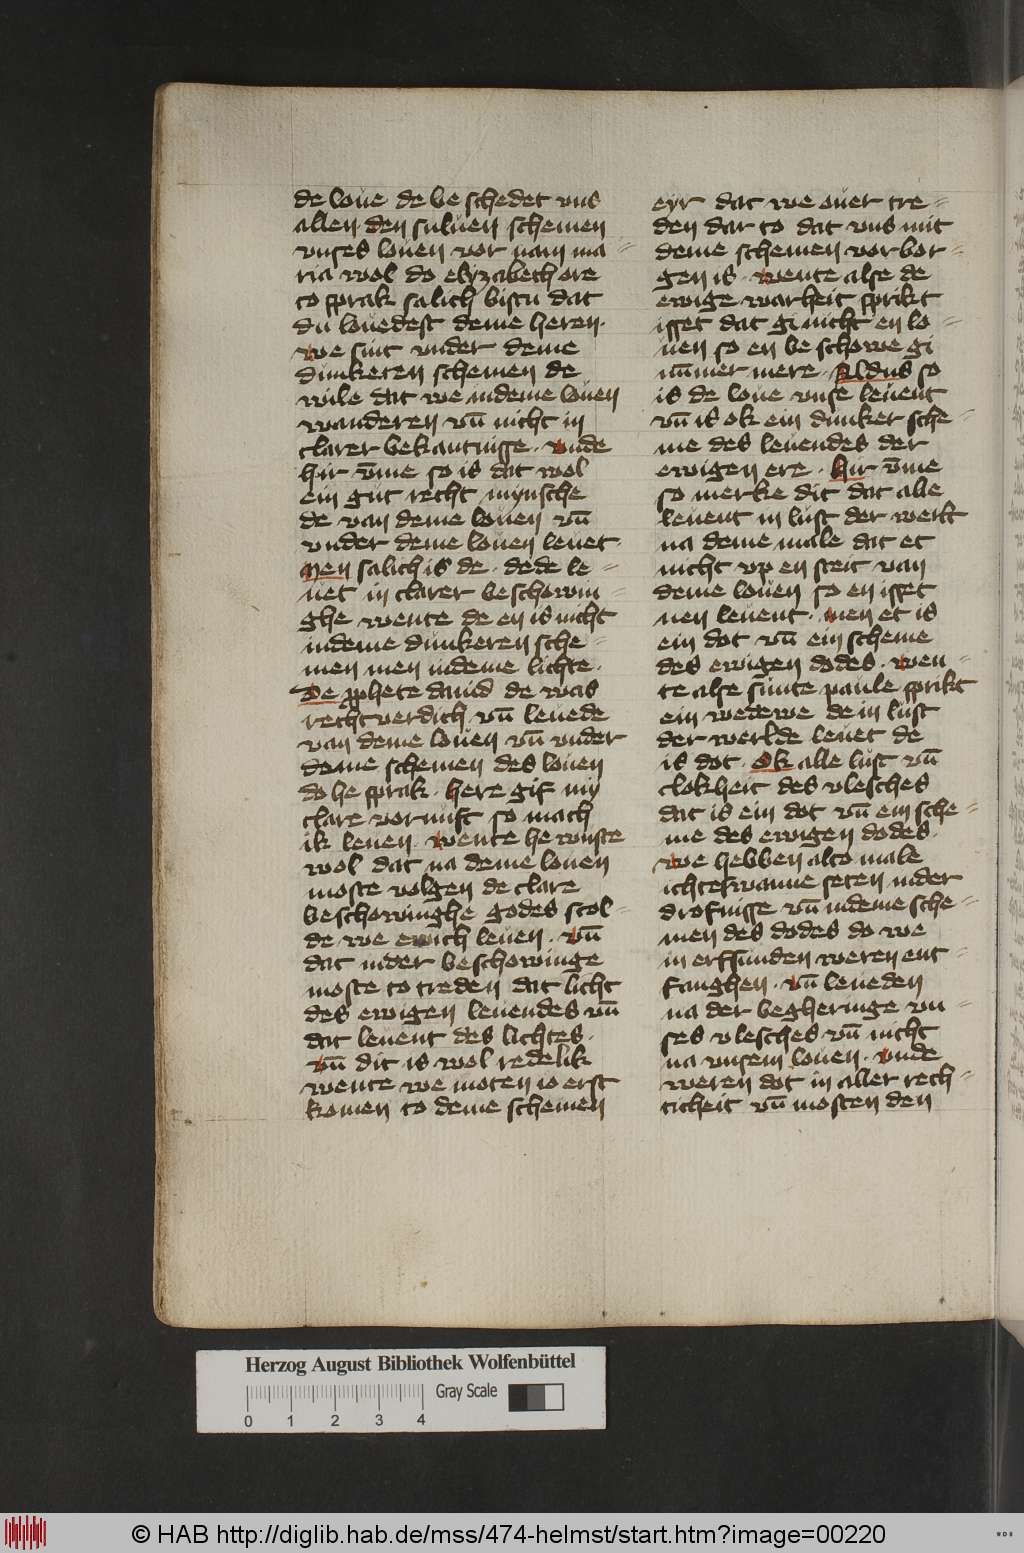 de loue de be schedet vns
allen den suluen schemen
vnses louen vor nam ma=
ria wol do elyzabeth ore
to sprak salich bistu dat
du louedest deme heren.
we sint vnder deme
dunkeren schemen de
wile dat we indeme louen
wanderen vn̄ nicht in
clarer bekantnisse. vnde
hir v̄me so is dat wol
ein gut recht mynsche
de van deme louen vn̄
vnder deme louen leuet.
Men salich is de. dede le=
uet in clarer beschowin=
ghe wente de en is nicht
indeme dunkeren sche=
men men indeme lichte.
De pphete dauid de was
rechtuerdich vn̄ leuede
van deme louen vn̄ vnder
deme schemen des louen
do he sprak. here gif my
clare vornuft so mach
ik leuen. wente he wuste
wol dat na deme louen
moste volgen de clare
beschowinghe godes scol=
de we ewich leuen. vn̄
dat inder beschowinge
moste to treden dat licht
des ewigen leuendes vn̄
dat leuent des lichtes.
vn̄ dit is wol redelik
wente we moten io erst
komen to deme schemen
eyr dat we ouer tre=
den dar to dat vns mit
deme schemen vorbor=
gen is. wente alse de
ewige warheit sprikt
isset dat gi nicht en lo=
uen so en be schowe gi
nūmer mere. Aldus so
is de loue vnse leuent
vn̄ is ok ein dunker sche=
me des leuendes der
ewigen ere. Hir v̄me
so merke dit dat alle
leuent in lust der werlt
na deme male dat et
nicht vp en steit van
deme louen so en isset
nen leuent. men et is
ein dot vn̄ ein scheme
des ewigen dodes. wen=
te alse sunte paule sprikt
ein wedewe de in lust
der werlde leuet de
is dot. Ok alle lust vn̄
clokheit des vlesches
dat is ein dot vn̄ ein sche=
me des ewigen dodes.
we hebben alto male
ichteswanne seten inder
drofnisse vn̄ indeme sche=
men des dodes do we
in erfsunden weren ent=
fanghen. vn̄ leueden
na der begheringe vn=
ses vlesches vn̄ nicht
na vnsem louen. vnde
weren dot in aller rech=
ticheit vn̄ mosten den
Herzog August Bibliothek Wolfenbüttel
Gray Scale
0 1 2 3 4
© HAB http://diglib.hab.de/mss/474-helmst/start.htm?image=00220